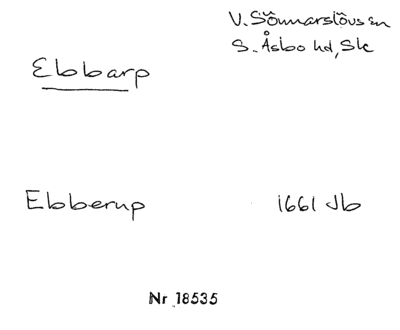 V. Sönnarslövs sn
S. Åsbo hd, Sk
Ebbarp
Ebberup 1661 Jb
Nr 18535